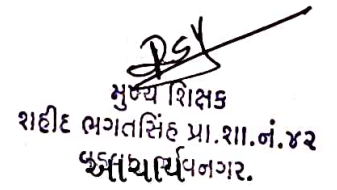 મુખ્ય શિક્ષક
શહીદ ભગતસિંહ પ્રા.શા.નં.૪૨
આચાર્ય